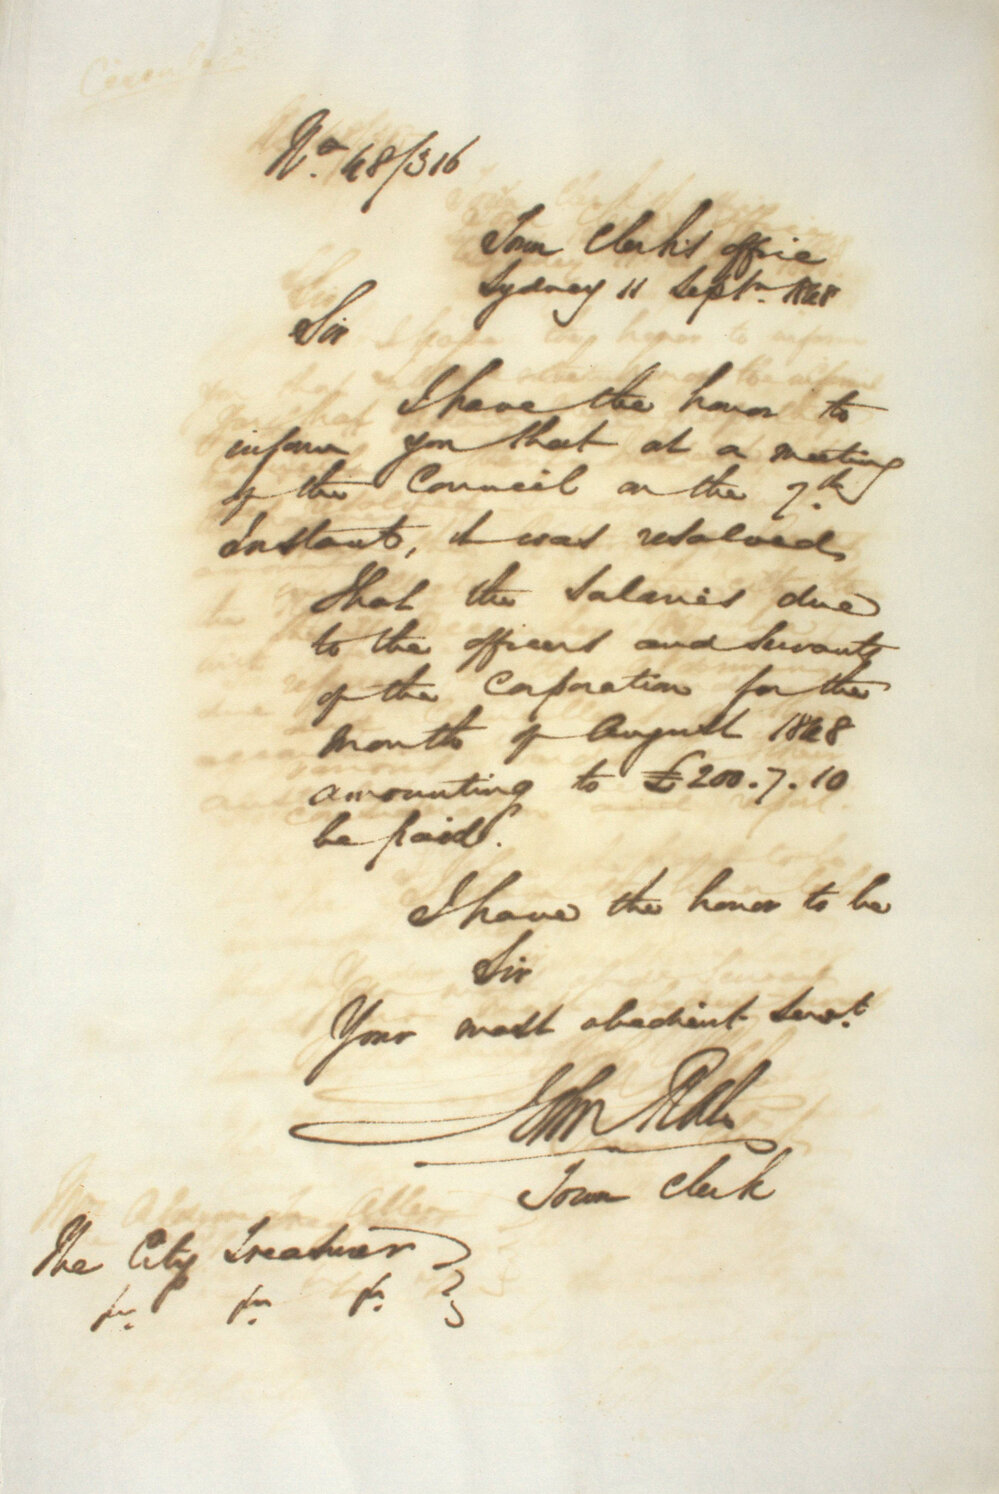 No. 48/316
Town Clerk's office
Sydney 11 Septr. 1848
Sir
I have the honor to
inform you that at a meeting
of the Council on the 7th
Instant, it was resolved
That the Salaries due
to the officers and Servants
of the Corporation for the
month of August 1848
amounting to £200.7.10
be paid.
I have the honor to be
Sir
Your most obedient Servt.
John
Town Clerk
The City Treasurer